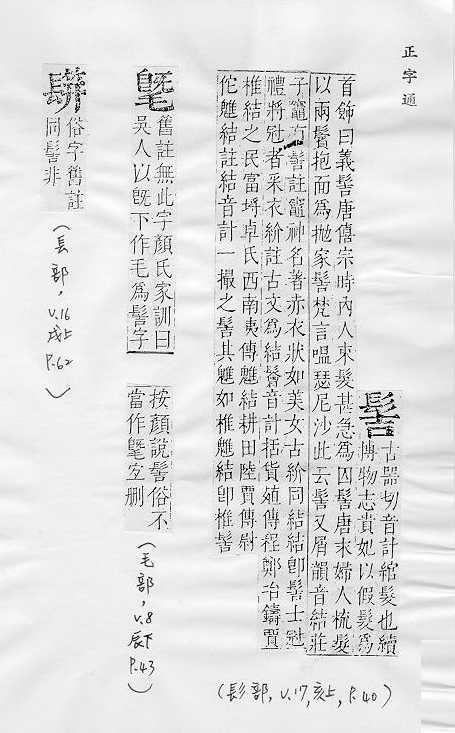 正字通
髻
古器切音計綰髮也續
博物志貴妃以假髮為
首飾曰義髻唐僖宗時內人束髮甚急為囚髻唐末婦人梳髮
以兩鬢抱面為拋家髻梵言嗢瑟尼沙此云髻又屑韻音結莊
子竈有髻註竈神名著赤衣狀如美女古紒同結結卽髻士冠
禮將冠者采衣紒註古文為結髻音計括貨殖傳程鄭冶鑄賈
椎結之民富埒卓氏西南夷傳魋結耕田陸賈傳尉
佗魋結註結音計一撮之髻其魋如椎魋結卽椎髻
(髟部, V.17, 亥上, P.40)
舊註無此字顏氏家訓曰
吳人以旣下作毛為髻字
按顏說髻俗不
當作毷宜刪
(毛部, V.8 辰下 P.43)
俗字舊註
同髻非
(長部, V.16 戌上 P.62)